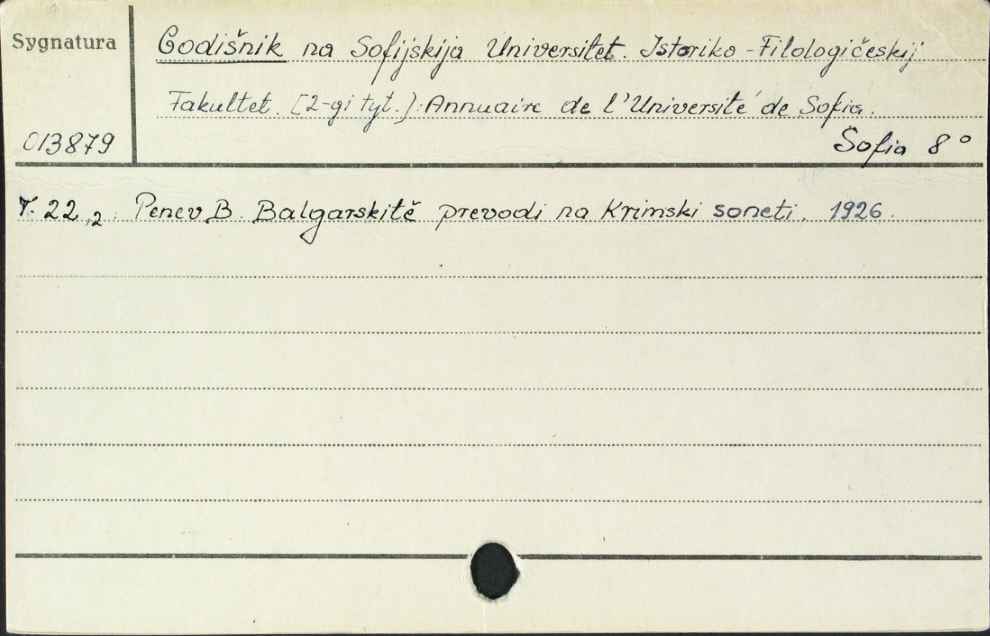 Sygnatura
Godišnik na Sofijskija Universitet. Istoriko-Filologičeskij
Fakultet. [2-gi tyt.]: Annuaire de l'Université de Sofia.
013879
Sofia 8°
T. 22,2: Penev B. Balgarskitě prevodi na Krimski soneti. 1926.